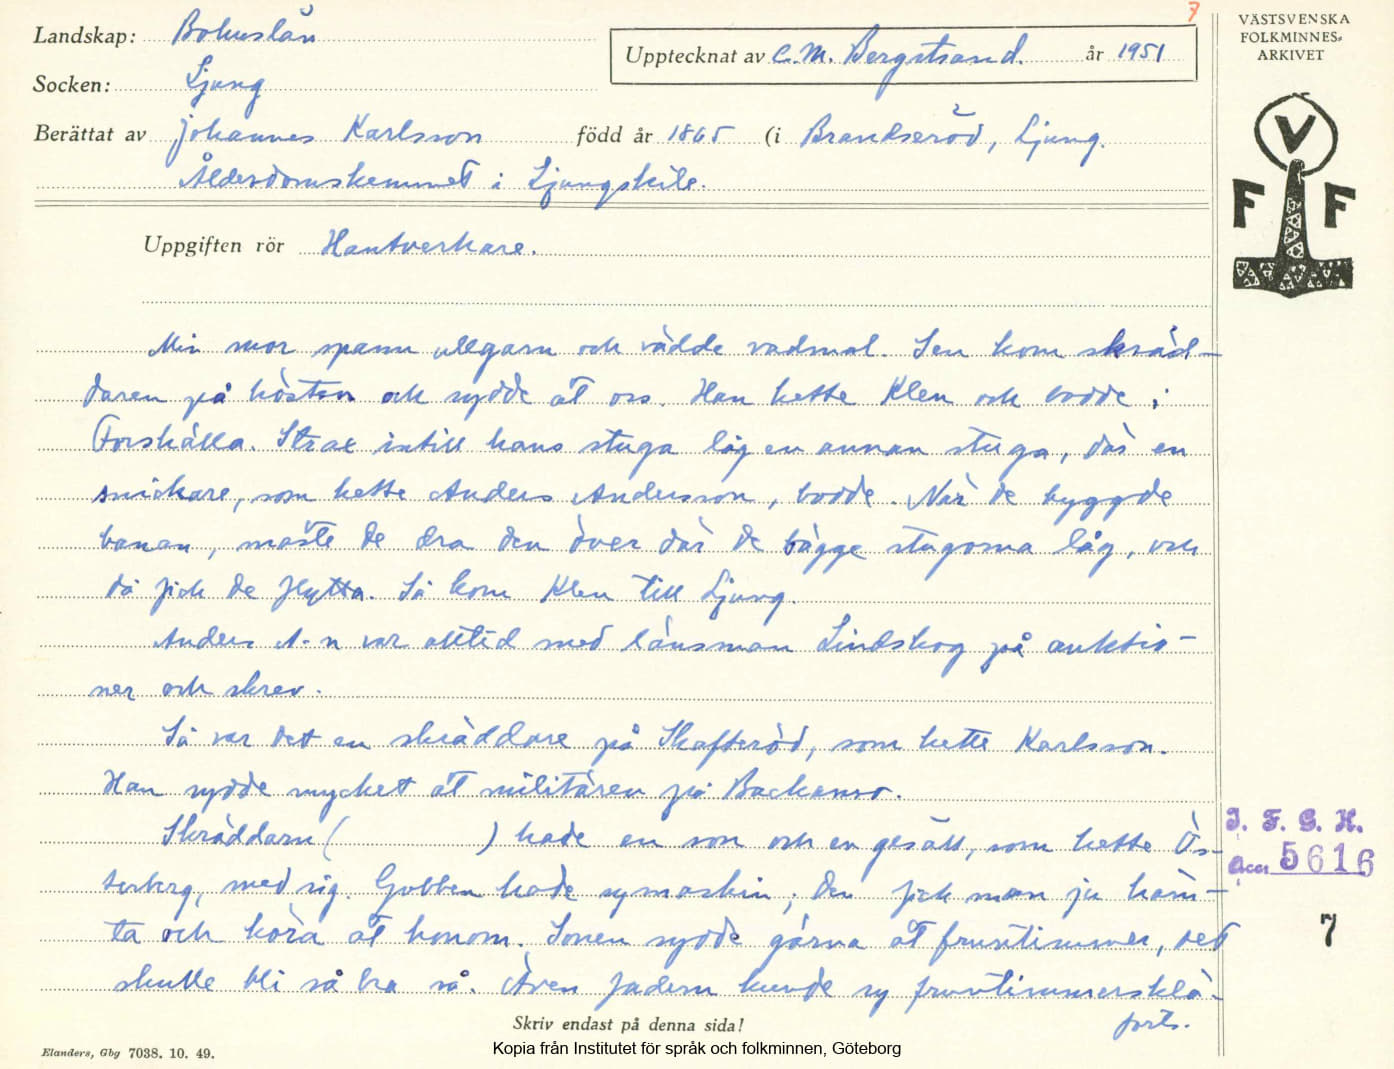 7
Landskap: Bohuslän
Socken: Ljung
Upptecknat av C. M. Bergstrand. år 1951
Berättat av Johannes Karlsson född år 1865 (i Brandseröd, Ljung.
Ålderdomshemmet i Ljungskile.
VÄSTSVENSKA
FOLKMINNES-
ARKIVET
V
F F
Uppgiften rör Hantverkare.
Min mor spann ullgarn och vädde vadmal. Sen kom skräd-
daren på hösten och sydde åt oss. Han hette Klen och bodde i
Forshälla. Strax intill hans stuga låg en annan stuga, där en
snickare, som hette Anders Andersson, bodde. När de byggde
banan, måste de dra den över där de bägge stugorna låg, och
då fick de flytta. Så kom Klen till Ljung.
Anders A-n var alltid med länsman Lindskog på auktio-
ner och skrev.
Så var det en skräddare på Skafteröd, som hette Karlsson.
Han sydde mycket åt militären på Backamo.
Skräddarn ( ) hade en son och en gesäll, som hette Ös-
terberg, med sig. Gubben hade symaskin; den fick man ju häm-
ta och köra åt honom. Sonen sydde gärna åt fruntimmer, det
skulle bli så bra så. Även fadern kunde sy fruntimmersklä-
forts.
I. F. G. H.
Acc. 5616
7
Skriv endast på denna sida!
Elanders, Gbg 7038. 10. 49.
Kopia från Institutet för språk och folkminnen, Göteborg